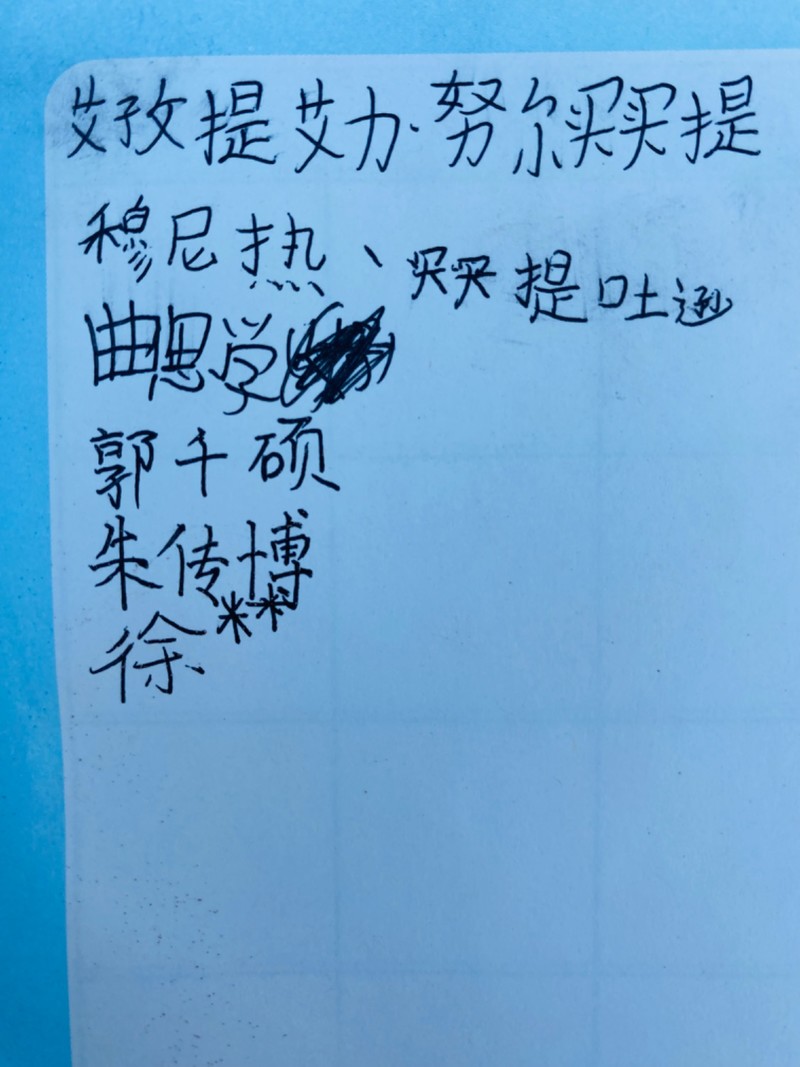 艾孜提艾力·努尔买买提
穆尼热、买买提吐逊
曲思学
郭千硕
朱传博
徐米米